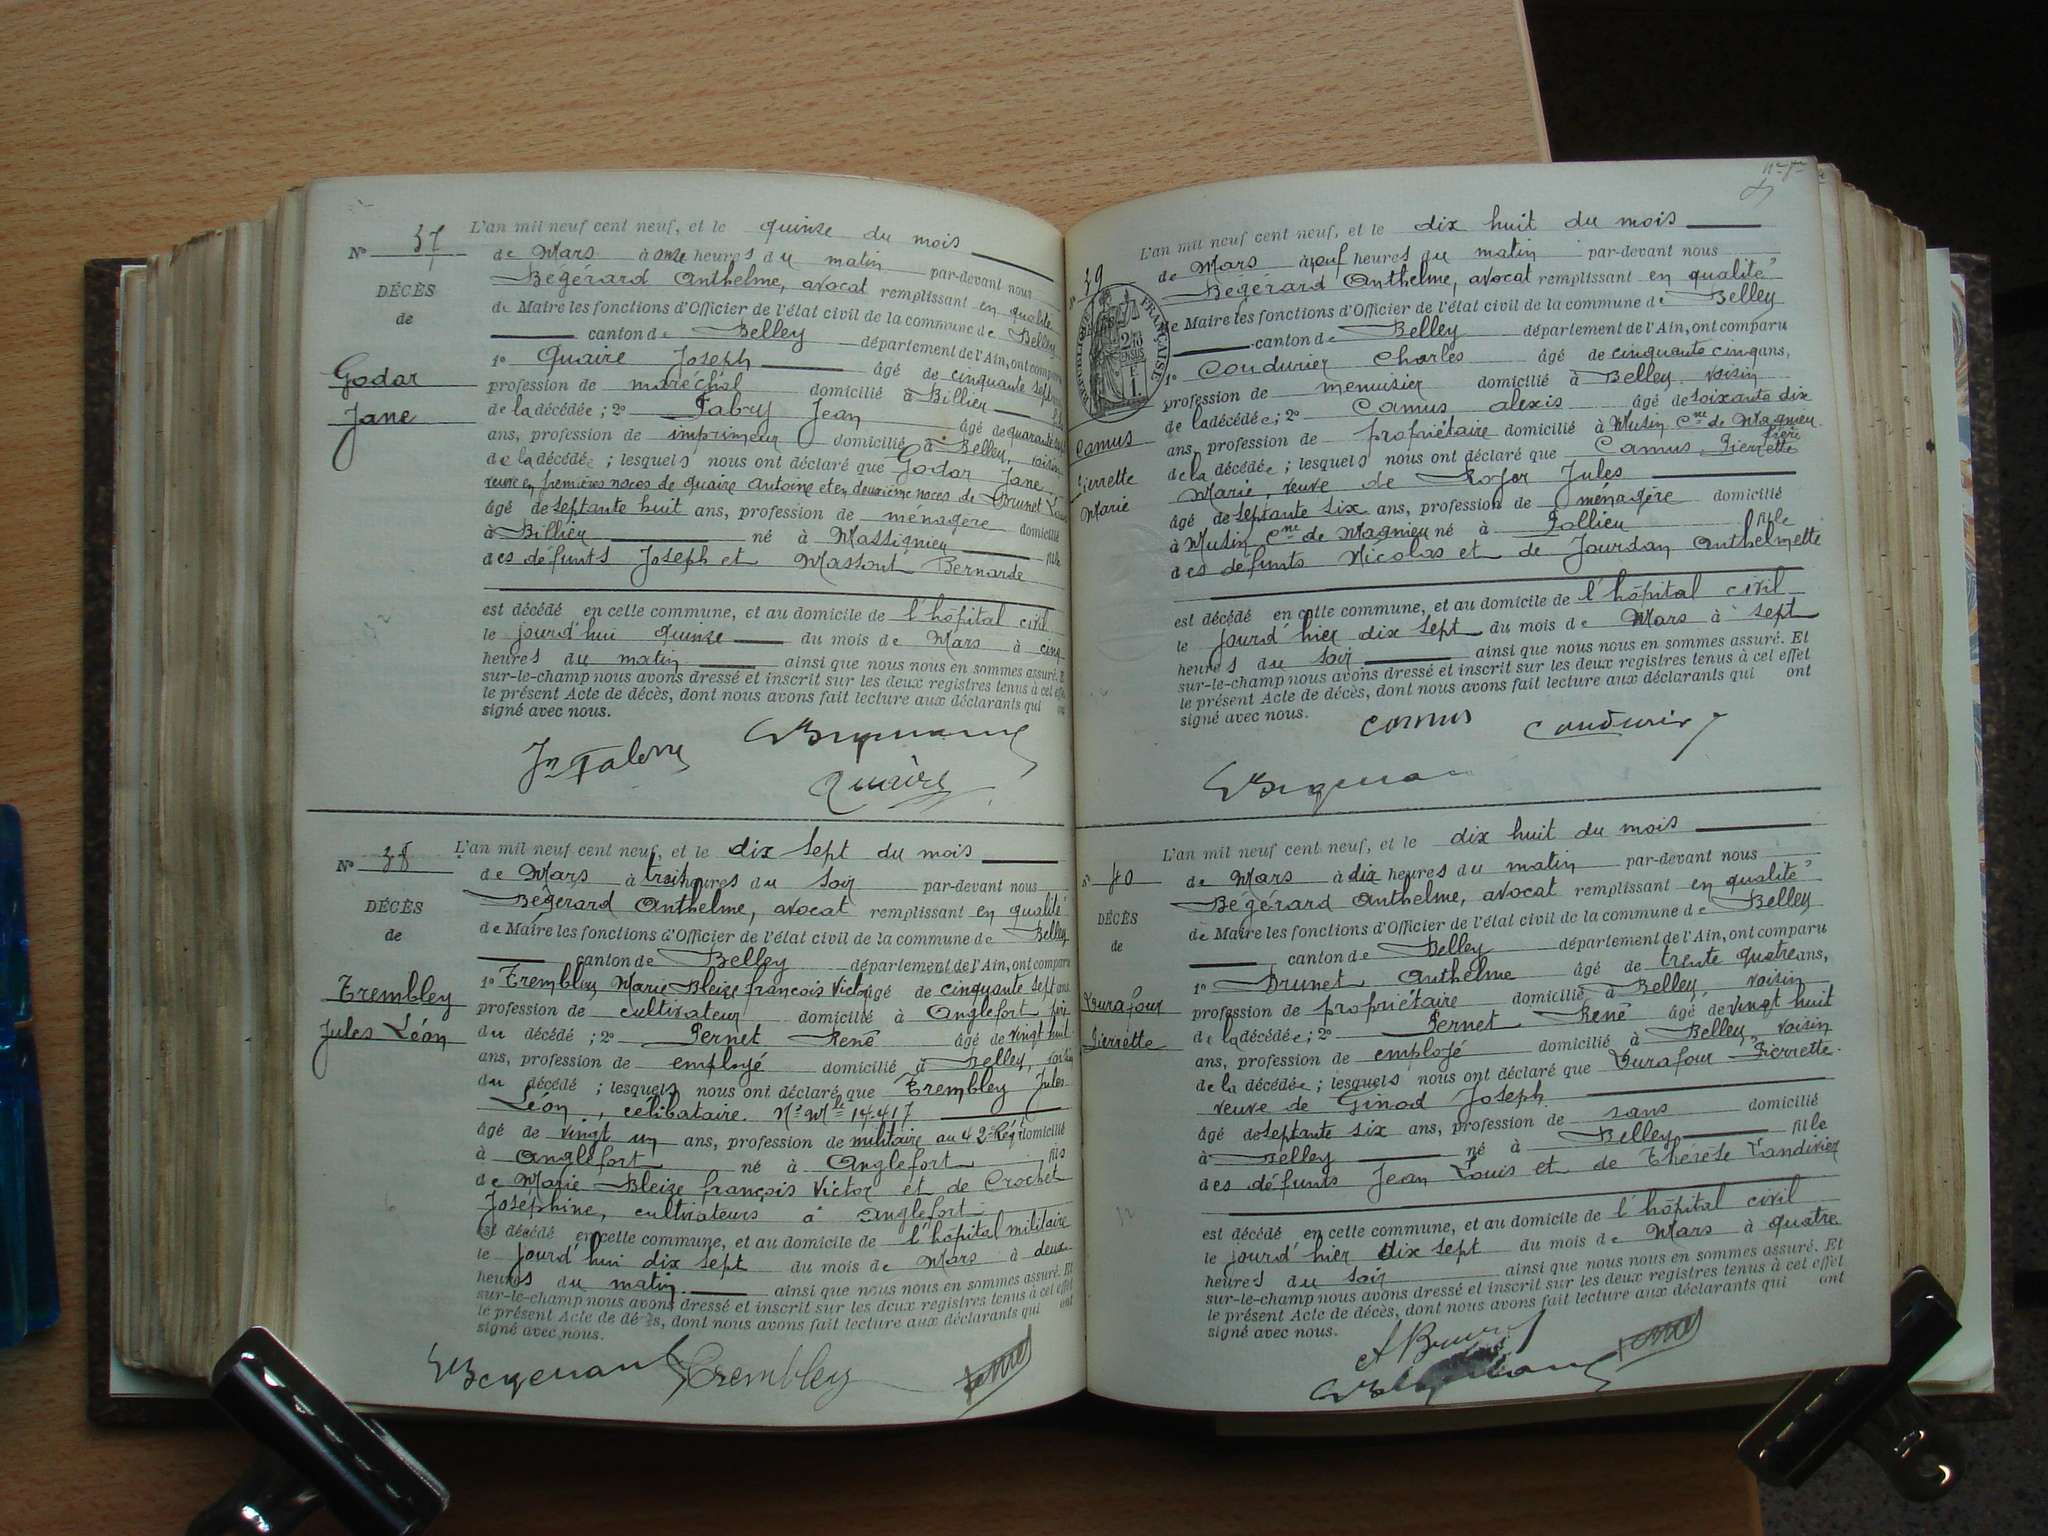 L'an mil neuf cent neuf, et le quinze du mois
N° 37
de Mars à onze heures du matin par-devant nous
Bégérard Anthelme, avocat remplissant en qualité
DÉCÈS
de Maire les fonctions d'Officier de l'état civil de la commune de Belley
de
canton de Belley département de l'Ain, ont comparu
1° Quaire Joseph âgé de cinquante sept
Godar
profession de maréchal domicilié à Billieu
Jane
de la décédée; 2° Fabry Jean âgé de quarante
ans, profession de imprimeur domicilié à Belley, voisin
de la décédée; lesquels nous ont déclaré que Godar Jane
veuve en premières noces de quaire Antoine et en deuxième noces de Brunet
âgé de septante huit ans, profession de ménagère domicilié
à Billieu né à Massignieu fille
des défunts Joseph et Massout Bernarde
est décédé en cette commune, et au domicile de l'hôpital civil
le jourd'hui quinze du mois de Mars à cinq
heures du matin ainsi que nous nous en sommes assuré. Et
sur-le-champ nous avons dressé et inscrit sur les deux registres tenus à cet effet
le présent Acte de décès, dont nous avons fait lecture aux déclarants qui ont
signé avec nous.
Jn Fabry
Quaire
L'an mil neuf cent neuf, et le dix sept du mois
N° 38
de Mars à trois heures du soir par-devant nous
Bégérard Anthelme, avocat remplissant en qualité
DÉCÈS
de Maire les fonctions d'Officier de l'état civil de la commune de Belley
de
canton de Belley département de l'Ain, ont comparu
1° Trembley Marie Bleize françois Victor âgé de cinquante sept ans
Trembley
profession de cultivateur domicilié à Anglefort père
Jules Léon
du décédé; 2° Pernet René âgé de vingt huit
ans, profession de employé domicilié à Belley, voisin
du décédé; lesquels nous ont déclaré que Trembley Jules
Léon, célibataire. N° Mle 14.417
âgé de vingt un ans, profession de militaire au 42e Régt domicilié
à Anglefort né à Anglefort fils
de Marie Bleize françois Victor et de Crochet
Joséphine, cultivateurs à Anglefort
est décédé en cette commune, et au domicile de l'hôpital militaire
le jourd'hui dix sept du mois de Mars à deux
heures du matin. ainsi que nous nous en sommes assuré. Et
sur-le-champ nous avons dressé et inscrit sur les deux registres tenus à cet effet
le présent Acte de décès, dont nous avons fait lecture aux déclarants qui ont
signé avec nous.
Trembley
L'an mil neuf cent neuf, et le dix huit du mois
39
de Mars à neuf heures du matin par-devant nous
Bégérard Anthelme, avocat remplissant en qualité
RÉPUBLIQUE FRANÇAISE
de Maire les fonctions d'Officier de l'état civil de la commune de Belley
canton de Belley département de l'Ain, ont comparu
1° Coudurier Charles âgé de cinquante cinq ans,
profession de menuisier domicilié à Belley voisin
de la décédée; 2° Camus alexis âgé de soixante dix
Camus
ans, profession de propriétaire domicilié à Musin Cne de Magnieu
frère
de la décédée; lesquels nous ont déclaré que Camus Pierrette
Pierrette
Marie, veuve de Rofer Jules
Marie
âgé de septante six ans, profession de ménagère domicilié
à Musin Cne de Magnieu né à Pollieu fille
des défunts Nicolas et de Jourdan Anthelmette
est décédé en cette commune, et au domicile de l'hôpital civil
le jourd'hier dix sept du mois de Mars à sept
heures du soir ainsi que nous nous en sommes assuré. Et
sur-le-champ nous avons dressé et inscrit sur les deux registres tenus à cet effet
le présent Acte de décès, dont nous avons fait lecture aux déclarants qui ont
signé avec nous.
Camus Coudurier
L'an mil neuf cent neuf, et le dix huit du mois
N° 40
de Mars à dix heures du matin par-devant nous
Bégérard Anthelme, avocat remplissant en qualité
DÉCÈS
de Maire les fonctions d'Officier de l'état civil de la commune de Belley
de
canton de Belley département de l'Ain, ont comparu
1° Brunet Anthelme âgé de trente quatre ans,
Durafour
profession de propriétaire domicilié à Belley voisin
Pierrette
de la décédée; 2° Pernet René âgé de vingt huit
ans, profession de employé domicilié à Belley, voisin
de la décédée; lesquels nous ont déclaré que Durafour Pierrette
veuve de Ginod Joseph
âgé de septante six ans, profession de sans domicilié
à Belley né à Belley fille
des défunts Jean Louis et de Thérèse Tandivier
est décédé en cette commune, et au domicile de l'hôpital civil
le jourd'hier dix sept du mois de Mars à quatre
heures du soir ainsi que nous nous en sommes assuré. Et
sur-le-champ nous avons dressé et inscrit sur les deux registres tenus à cet effet
le présent Acte de décès, dont nous avons fait lecture aux déclarants qui ont
signé avec nous.